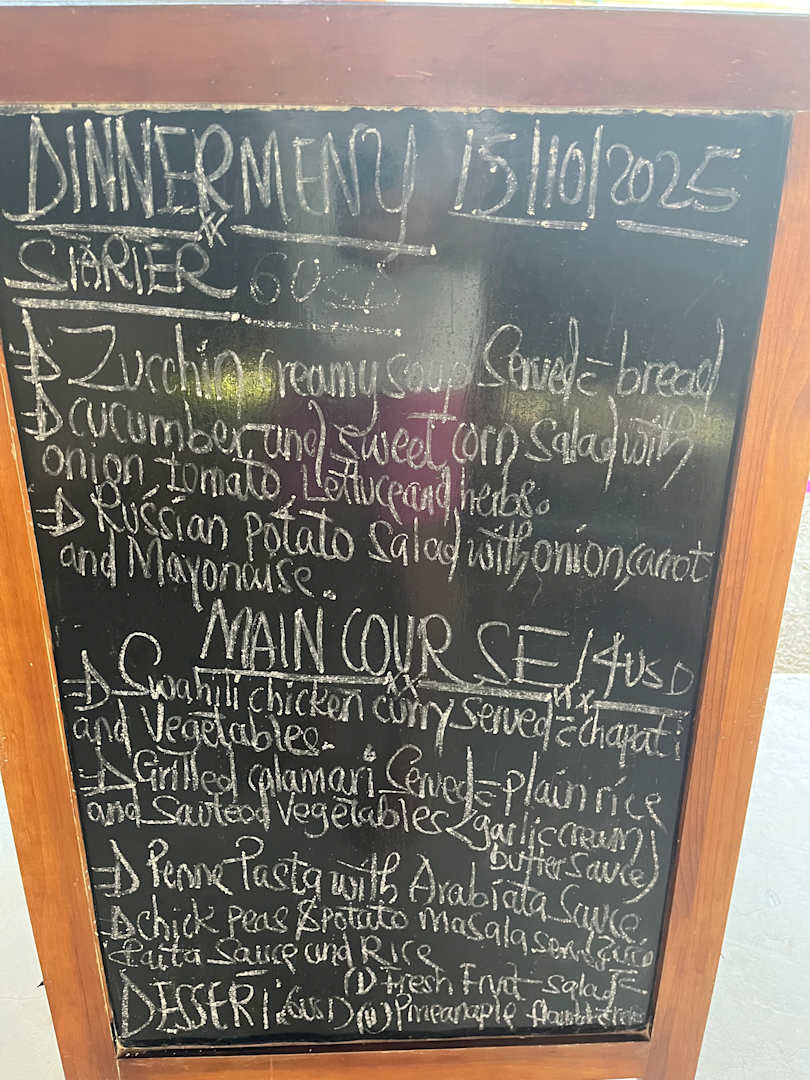 DINNER MENU 15/10/2025
STARTER 6USD
Zucchin creamy soup Served = bread
cucumber and sweet corn salad with
onion, tomato, Lettuce and herbs.
Russian potato salad with onion, carrot
and Mayonaise.
MAIN COURSE 14USD
Swahili chicken curry served = chapati
and Vegetables.
Grilled calamari Served = plain rice
and Sauteed Vegetables (garlic cream
butter sauce)
Penne Pasta with Arabiata Sauce
chick peas & potato masala served
Raita Sauce and Rice
(I) Fresh Fruit salad
DESSERT: 6USD (II) Pineanaple